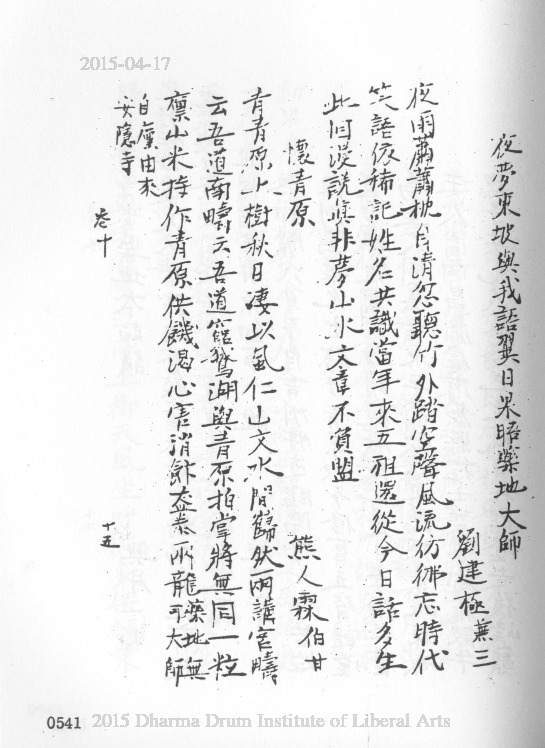 2015-04-17
夜夢東坡與我語翼日果晤藥地大師
劉建極蕪三
夜雨蕭蕭枕自清忽聽竹外踏空聲風流彷彿忘時代
笑語依稀記姓名共識當年來五祖還從今日話多生
此回漫說真非夢山水文章不負盟
懷青原 熊人霖伯甘
青青原上樹秋日凄以風仁山文水間巋然兩講宮疇
云吾道南疇云吾道窮鵝湖與青原拍掌將無同一粒
廩山米持作青原供饑渴心害消兩龍藥地無
可大師
自廩由來
安隱寺
卷十 十五
0541 2015 Dharma Drum Institute of Liberal Arts